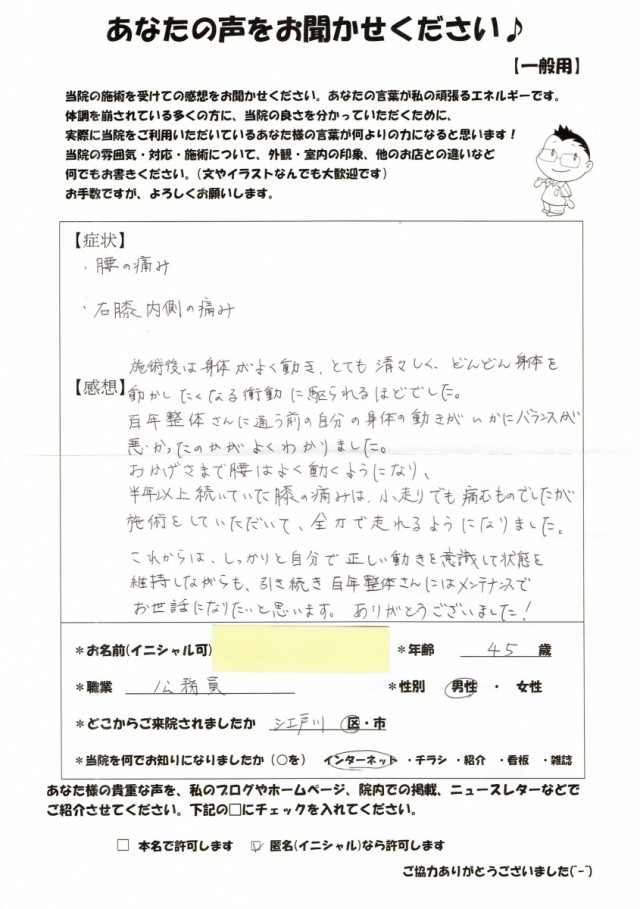 あなたの声をお聞かせください♪
【一般用】
当院の施術を受けての感想をお聞かせください。あなたの言葉が私の頑張るエネルギーです。
体調を崩されている多くの方に、当院の良さを分かっていただくために、
実際に当院をご利用いただいているあなた様の言葉が何よりの力になると思います！
当院の雰囲気・対応・施術について、外観・室内の印象、他のお店との違いなど
何でもお書きください。(文やイラストなんでも大歓迎です)
お手数ですが、よろしくお願いします。
【症状】
・腰の痛み
・右膝内側の痛み
【感想】
施術後は身体がよく動き、とても清々しく、どんどん身体を
動かしたくなる衝動に駆られるほどでした。
百年整体さんに通う前の自分の身体の動きがいかにバランスが
悪かったのかがよくわかりました。
おかげさまで腰はよく動くようになり、
半年以上続いていた膝の痛みは、小走りでも痛むものでしたが
施術をしていただいて、全力で走れるようになりました。
これからは、しっかりと自分で正しい動きを意識して状態を
維持しながらも、引き続き百年整体さんにはメンテナンスで
お世話になりたいと思います。ありがとうございました！
＊お名前(イニシャル可) ＊年齢 45 歳
＊職業 公務員 ＊性別 男性 ・ 女性
＊どこからご来院されましたか 江戸川 区・市
＊当院を何でお知りになりましたか (○を) インターネット ・チラシ ・紹介 ・看板 ・雑誌
あなた様の貴重な声を、私のブログやホームページ、院内での掲載、ニュースレターなどで
ご紹介させてください。下記の□にチェックを入れてください。
□ 本名で許可します ☑ 匿名(イニシャル)なら許可します
ご協力ありがとうございました(^-^)